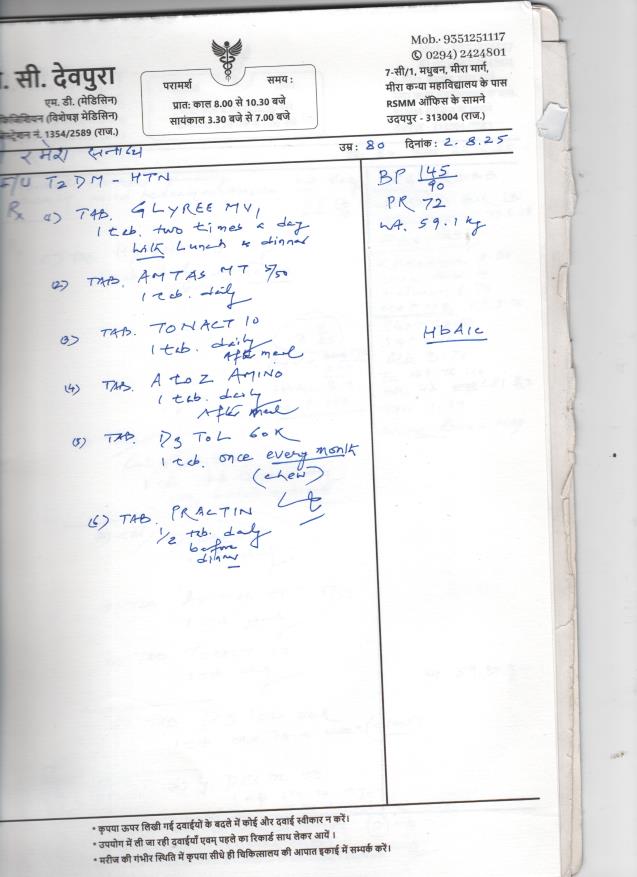 Mob.- 9351251117
0294) 2424801
7-सी/1, मधुबन, मीरा मार्ग,
मीरा कन्या महाविद्यालय के पास
RSMM ऑफिस के सामने
उदयपुर - 313004 (राज.)
. सी. देवपुरा
एम. डी. (मेडिसिन)
फिजिशियन (विशेषज्ञ मेडिसिन)
1354/2589 (राज.)
परामर्श समय :
प्रात: काल 8.00 से 10.30 बजे
सायंकाल 3.30 बजे से 7.00 बजे
रमेश सनाढ्य उम्र : 80 दिनांक: 2.8.25
F/U T2 DM - HTN
BP 145/90
PR 72
Wt. 59.1 kg
HbA1c
Rx 1) TAB. GLYREE MV1
1 tab. two times a day
with Lunch & dinner
(2) TAB. AMTAS MT 5/50
1 tab. daily
(3) TAB. TONACT 10
1 tab. daily
After meal
(4) TAB. A to Z AMINO
1 tab. daily
After meal
(5) TAB. D3 TOL 60K
1 tab. once every month
(chew)
(6) TAB. PRACTIN
1/2 tab. daily
before
dinner
* कृपया ऊपर लिखी गई दवाईयों के बदले में कोई और दवाई स्वीकार न करें।
* उपयोग में ली जा रही दवाईयाँ एवम् पहले का रिकार्ड साथ लेकर आयें ।
* मरीज की गंभीर स्थिति में कृपया सीधे ही चिकित्सालय की आपात इकाई में सम्पर्क करें।